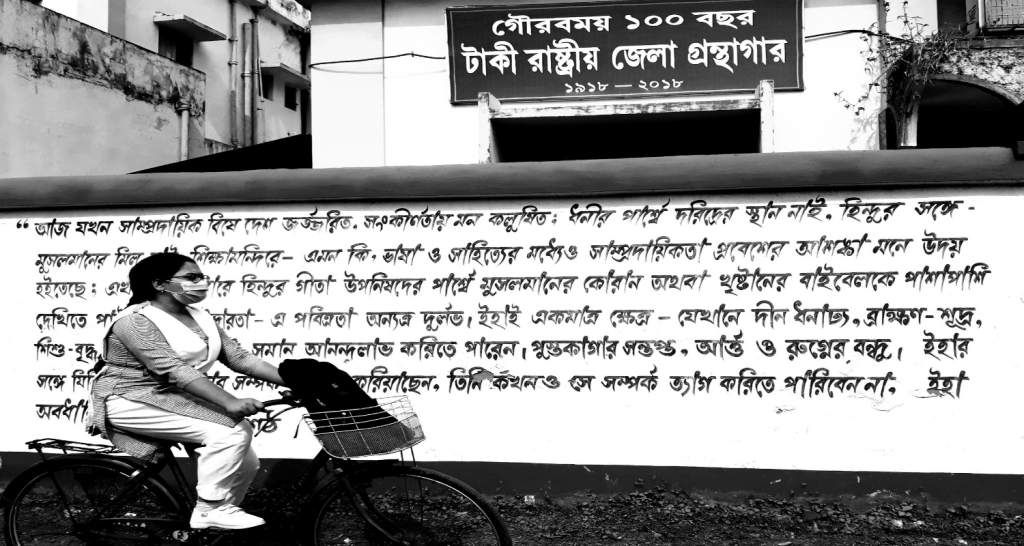 গৌরবময় ১০০ বছর
টাকী রাষ্ট্রীয় জেলা গ্রন্থাগার
১৯১৮ — ২০১৮
“ আজ যখন সাম্প্রদায়িক বিষে দেশ জর্জ্জরিত, সংকীর্ণতায় মন কলুষিত; ধনীর পার্শ্বে দরিদ্রের স্থান নাই, হিন্দুর সঙ্গে -
মুসলমানের মিল শিক্ষামন্দিরে- এমন কি, ভাষা ও সাহিত্যের মধ্যেও সাম্প্রদায়িকতা প্রবেশের আশঙ্কা মনে উদয়
হইতেছে; হিন্দুর গীতা উপনিষদের পার্শ্বে মুসলমানের কোরান অথবা খৃষ্টানের বাইবেলকে পাশাপাশি
দেখিতে - এ পবিত্রতা অন্যত্র দুর্লভ। ইহাই একমাত্র ক্ষেত্র - যেখানে দীন ধনাঢ্য, ব্রাহ্মণ-শূদ্র,
শিশু-বৃদ্ধ সমান আনন্দলাভ করিতে পারেন। পুস্তকাগার সন্তপ্ত, আর্ত্ত ও রুগ্নের বন্ধু। ইহার
সঙ্গে যিনি সম্পর্ক করিয়াছেন, তিনি কখনও সে সম্পর্ক ত্যাগ করিতে পারিবেন না, ইহা